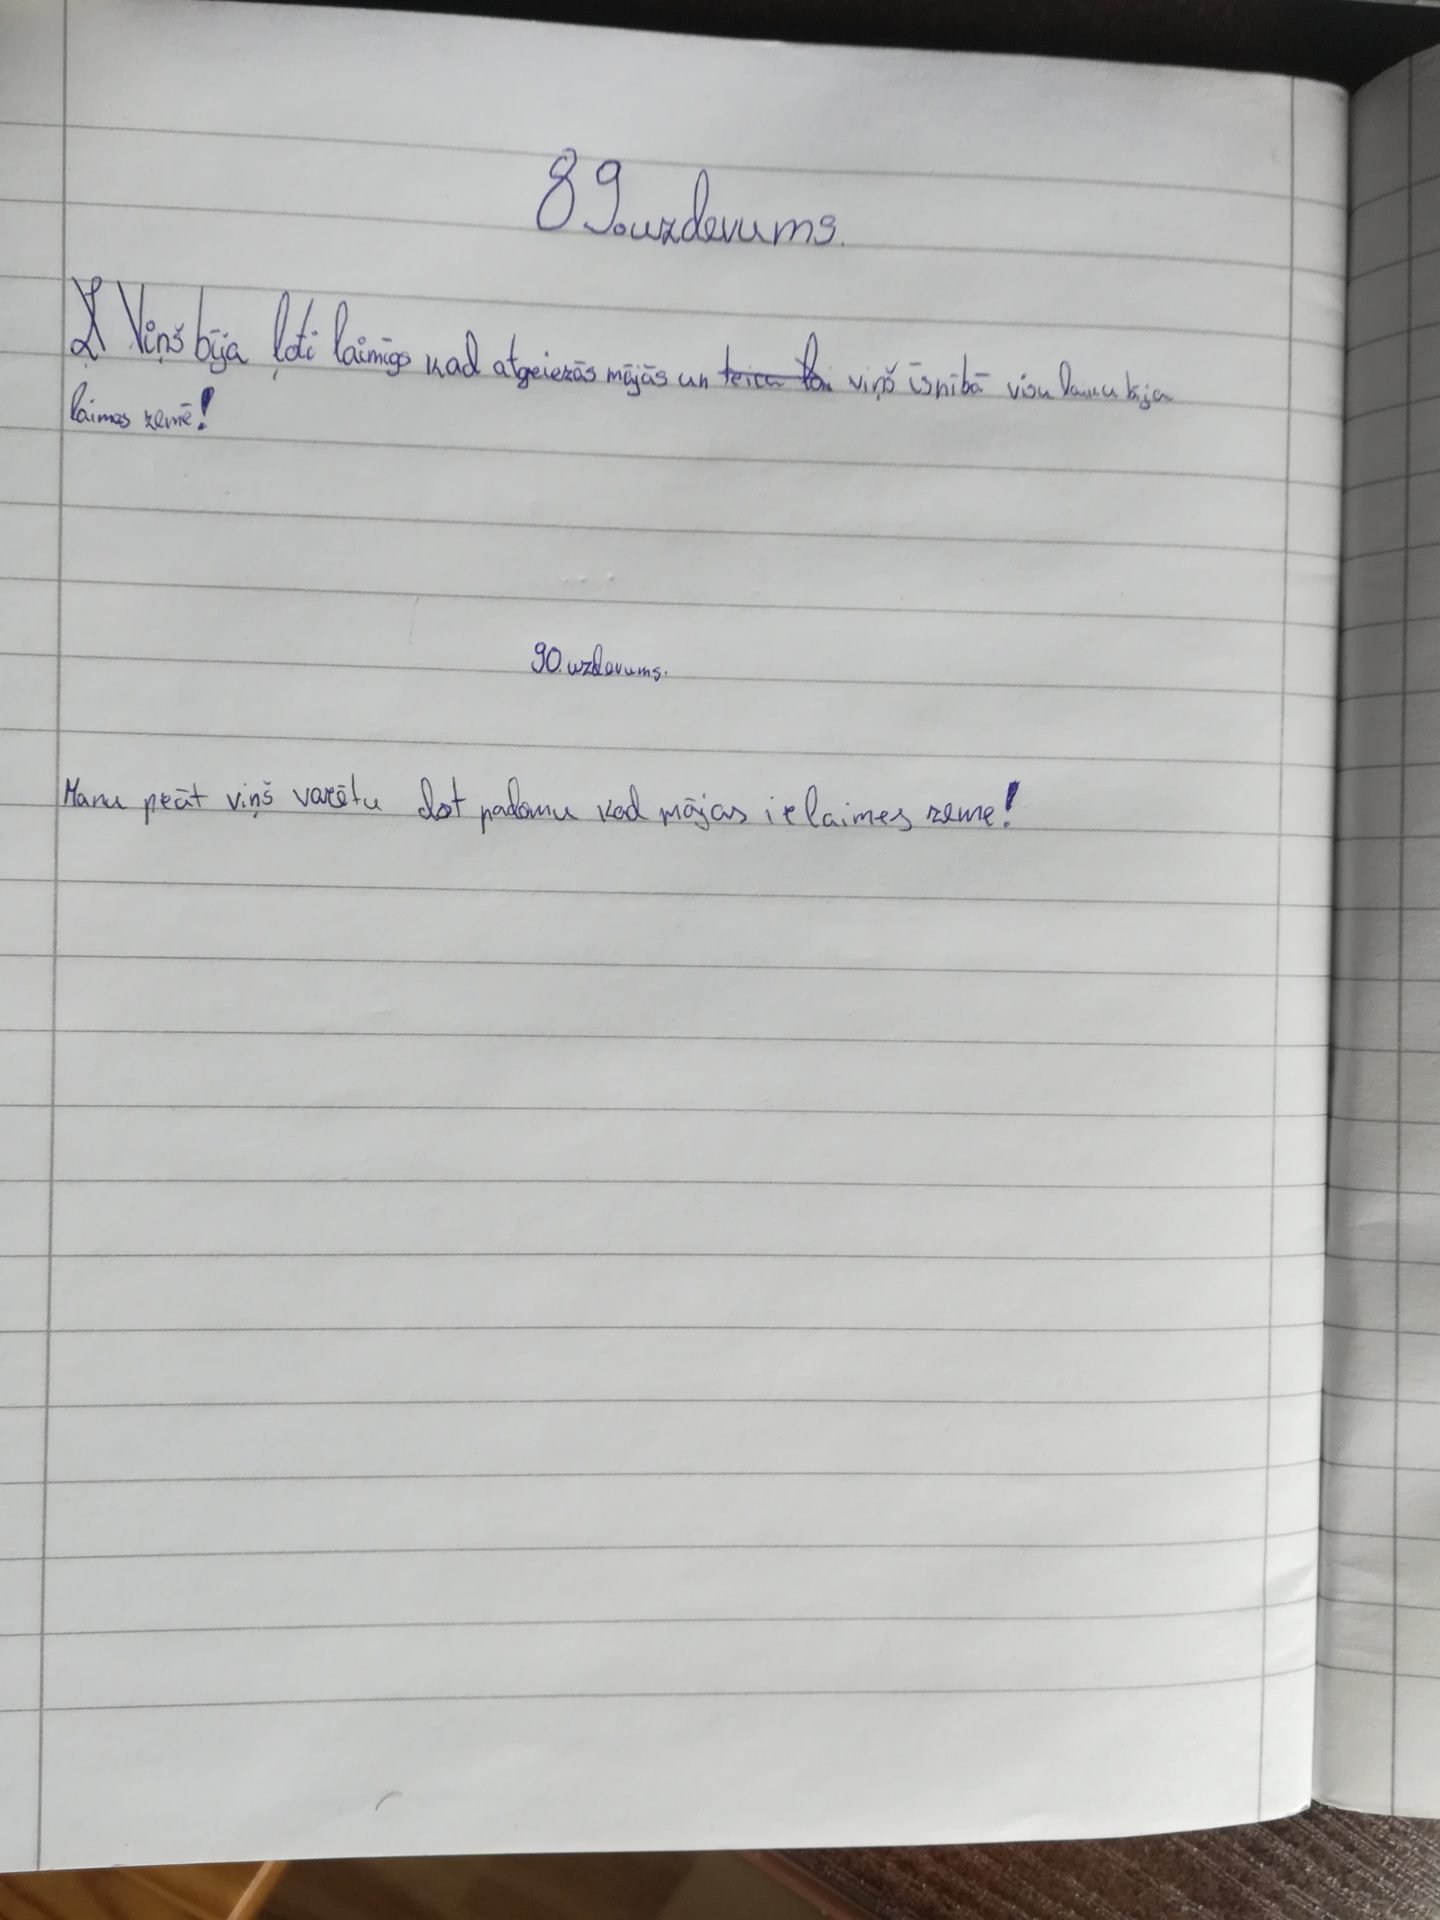 89.uzdevums.
Viņš bīja ļoti laimīgs kad atgeiezās mājās un teica lai viņš īsnībā visu laiku bija
laimes zemē!
90.uzdevums.
Manu prāt viņš varētu dot padomu kad mājas ir laimes zeme!